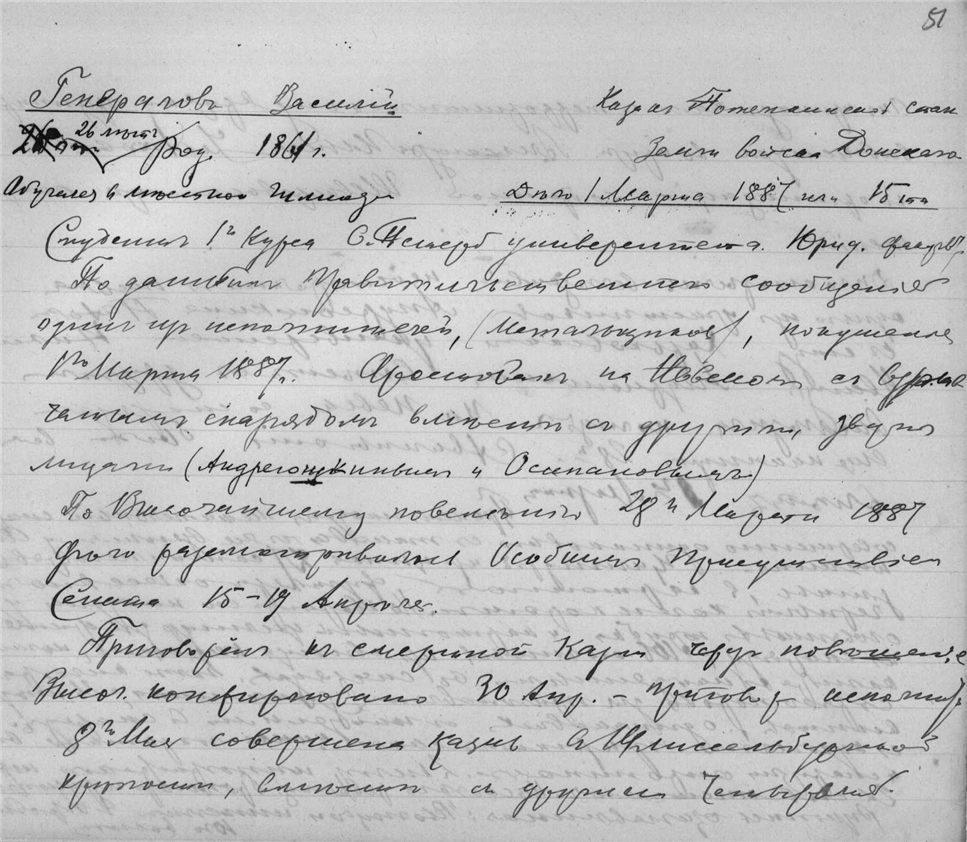 51
Генералов Василій Казак Потемкинской стан
26 лет Род. 1861 г. Земли войска Донского
Обучался в местной Гимназ Дѣло 1 Марта 1887 или 15ти
Студент 1го Курса С. Петерб университета. Юрид. факульт.
По данным Правительственнаго сообщенія
один из исполнителей, (Метальщиков), покушения
1го Марта 1887 г. Арестован на Невском с взрыв
чатым снарядом вместе с другими, двумя
лицами (Андреюшкиным и Осипановым)
По Высочайшему повелению 28го Марта 1887
дѣло разсматривалось Особым Присутствіем
Сената 15–19 Апреля.
Приговорён к смертной Казни через повешеніе
Высоч. конфирмовано 30 Апр. – приговор исполнен
8го Мая совершена казнь в Шлиссельбургской
крепости, вместе с другими Четырьмя.